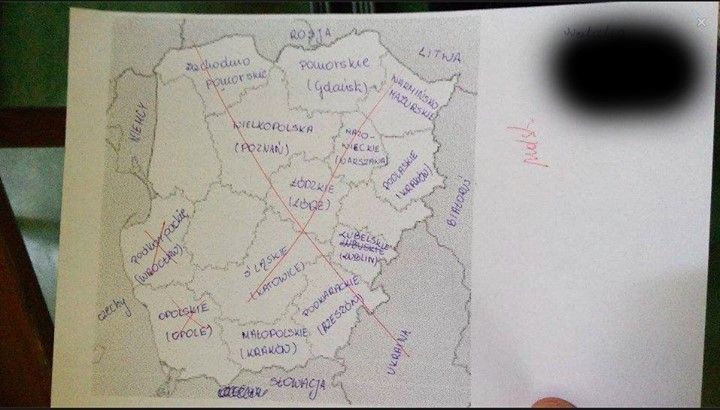 ROSJA
LITWA
Zachodnio
pomorskie
Pomorskie
(Gdańsk)
WARMIŃSKO
MAZURSKIE
NIEMCY
WIELKOPOLSKA
(POZNAŃ)
MAZO-
WIECKIE
(WARSZAWA)
PODLASKIE
(KRAKÓW)
BIAŁORUŚ
ŁÓDZKIE
(ŁÓDŹ)
(WROCŁAW)
ŚLĄSKIE
(KATOWICE)
LUBELSKIE
LUBUSKIE
(LUBLIN)
OPOLSKIE
(OPOLE)
PODKARPACKIE
(RZESZÓW)
MAŁOPOLSKIE
(KRAKÓW)
Czechy
UKRAINA
SŁOWACJA
ndst